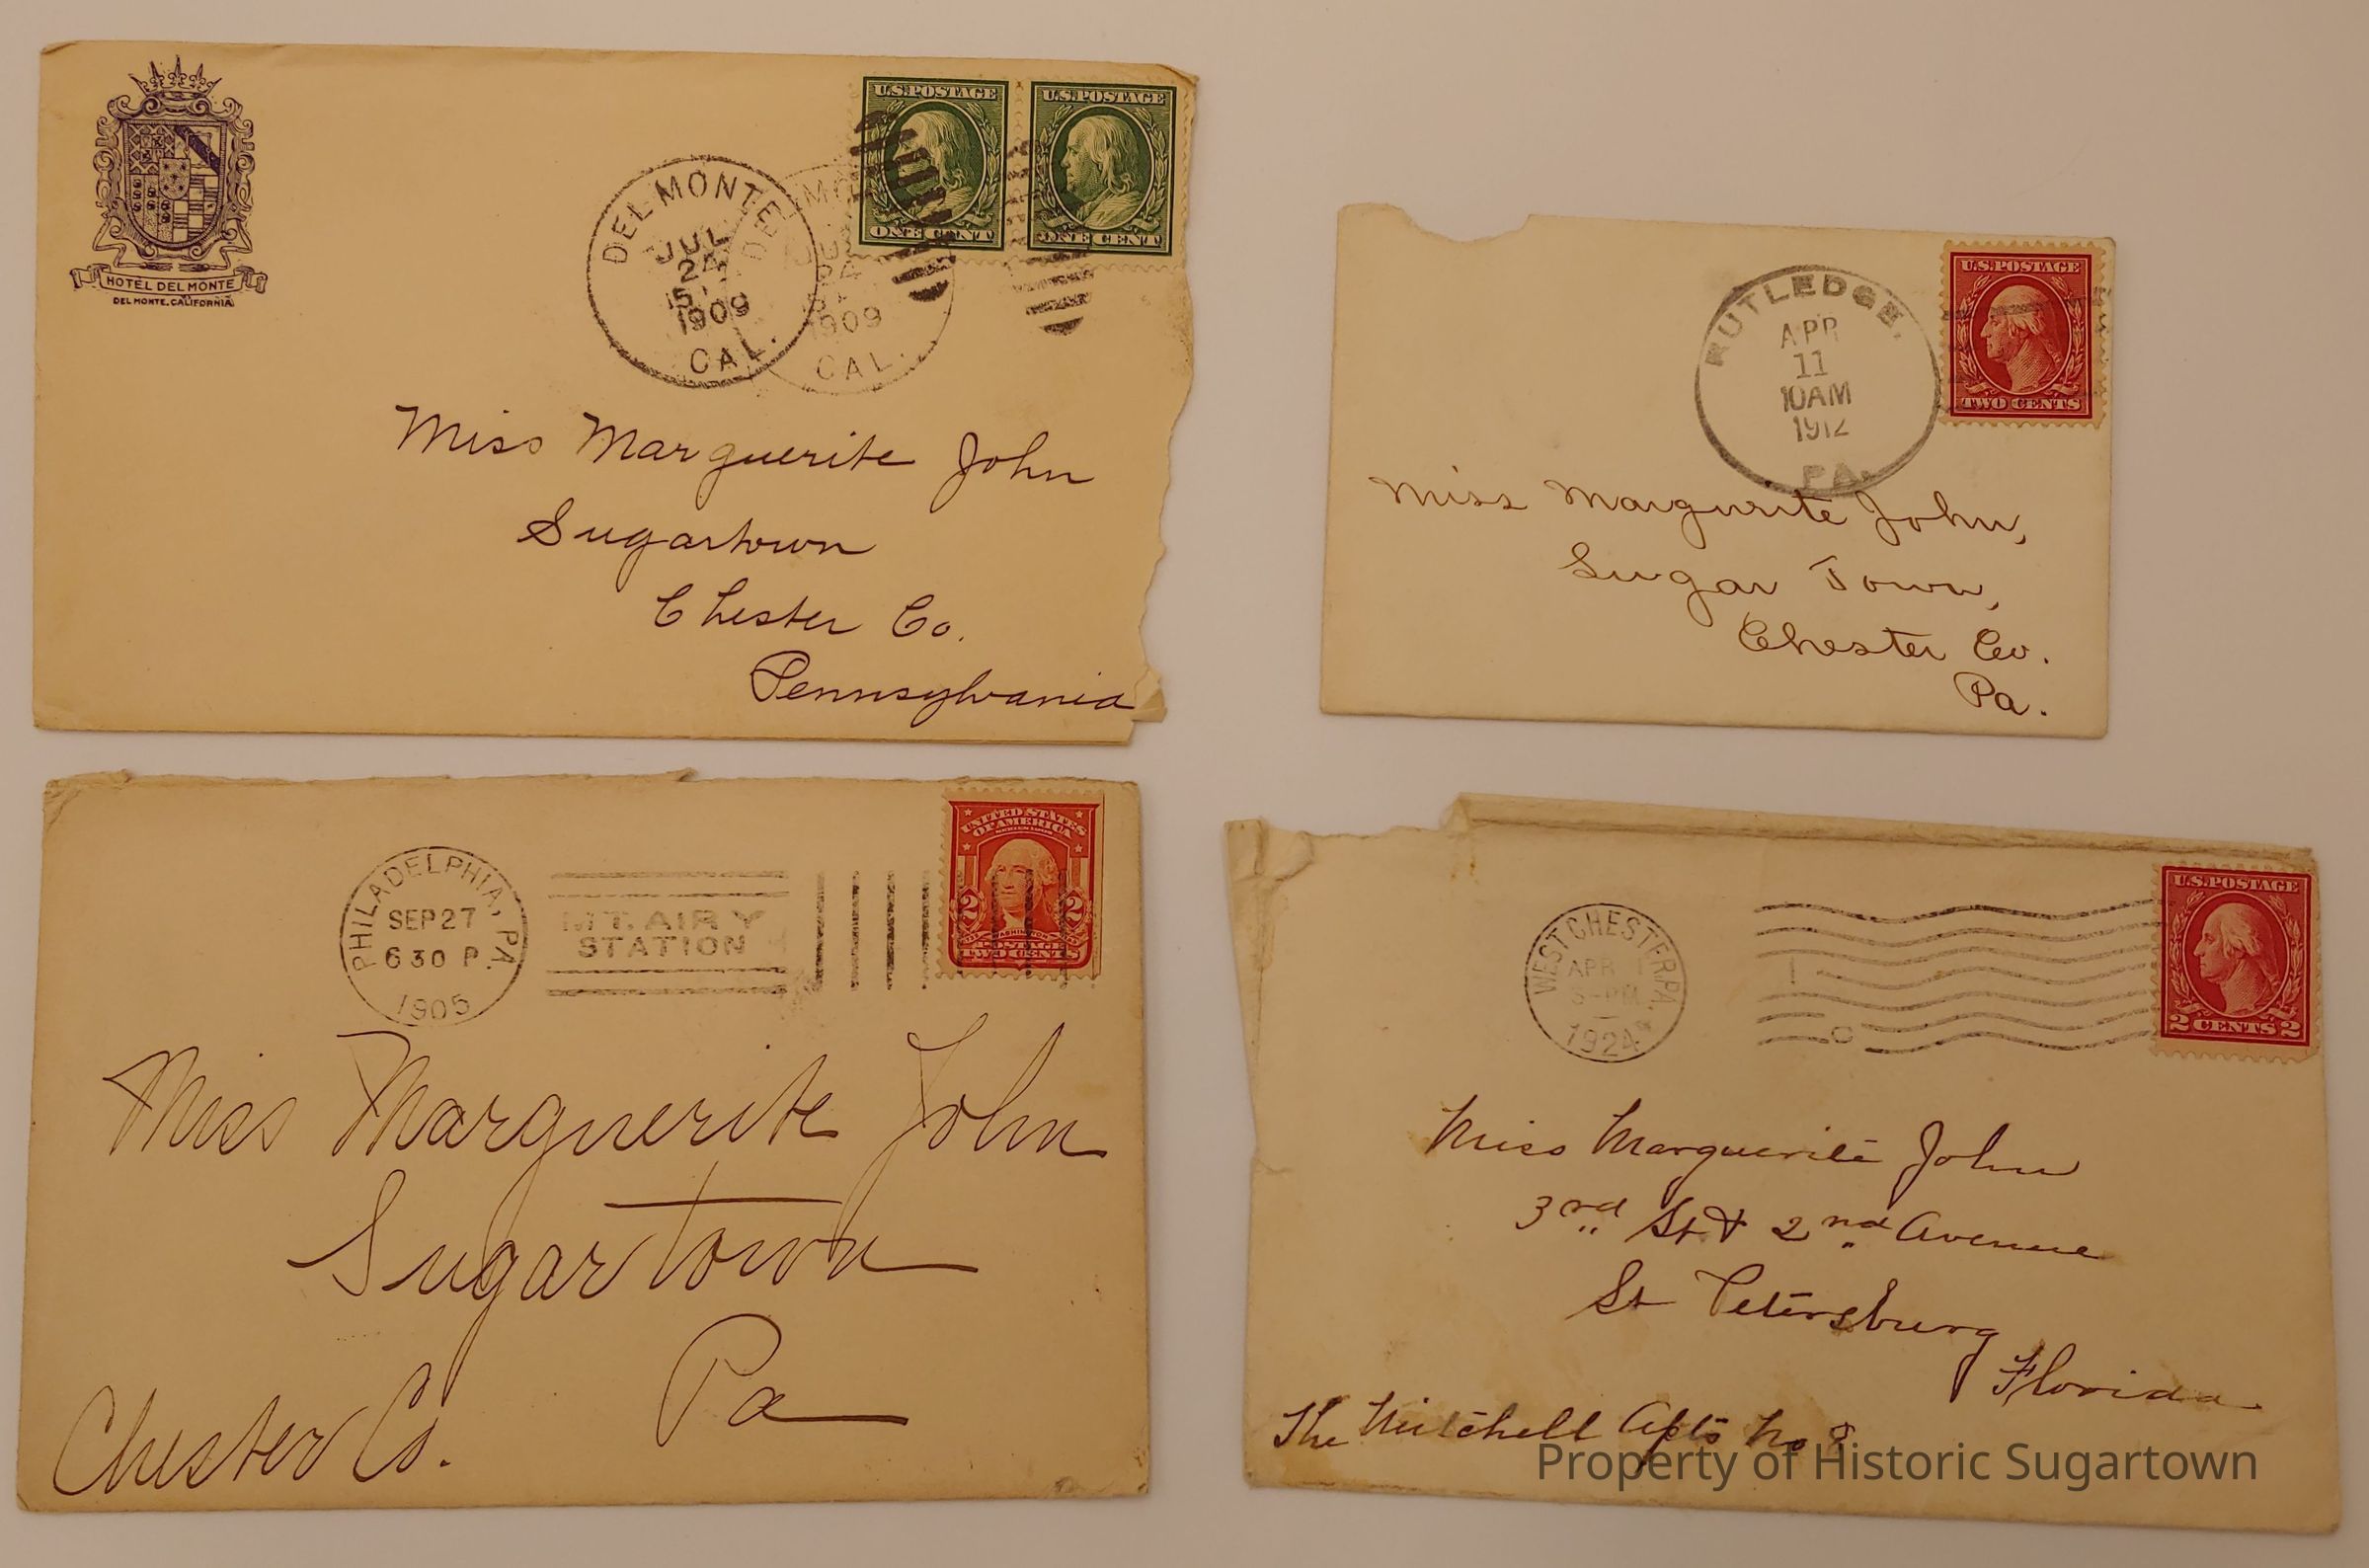 HOTEL DEL MONTE
DEL MONTE, CALIFORNIA
DEL MONTE
JUL
24
1909
CAL.
U.S. POSTAGE
ONE CENT
U.S. POSTAGE
ONE CENT
Miss Marguerite John
Sugartown
Chester Co.
Pennsylvania
RUTLEDGE,
APR
11
10AM
1912
PA.
U.S. POSTAGE
TWO CENTS
Miss Margurite John,
Sugar Town,
Chester Co.
Pa.
PHILADELPHIA, PA.
SEP 27
6 30 P.
1905
MT. AIRY
STATION
UNITED STATES
OF AMERICA
2 2
WASHINGTON
POSTAGE
TWO CENTS
Miss Marguerite John
Sugartown
Pa
Chester Co.
WEST CHESTER, PA.
APR
1924
U.S. POSTAGE
2 CENTS 2
Miss Marguerite John
3rd St & 2nd Avenue
St Petersburg
Florida
The Mitchell Apts No 8
Property of Historic Sugartown